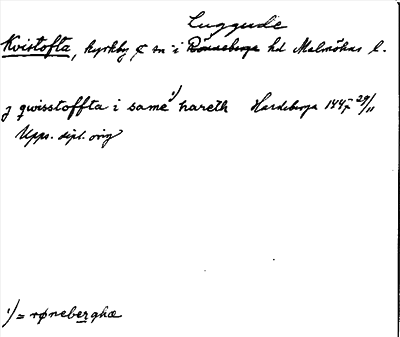 Luggude
Kvistofta, kyrkby & sn i Rönneberga hd Malmöhus l.
j qwisstoffta i same ¹) hareth Hardeberga 1447 29/11
Upps. dipl. orig
¹) = røneberghæ